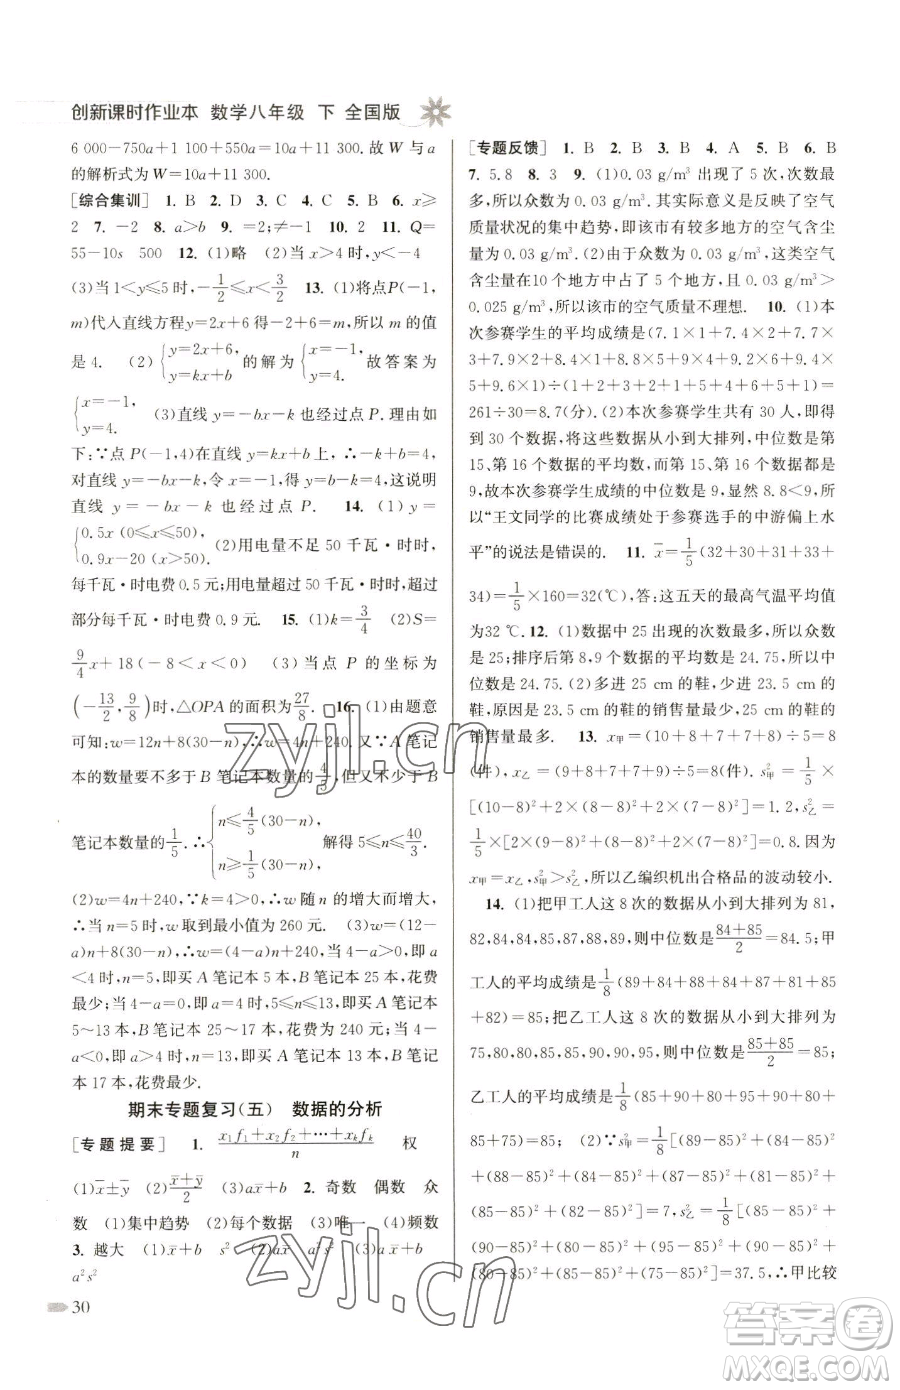 创新课时作业本 数学八年级 下 全国版
6 000-750a+1 100+550a=10a+11 300.故 W 与 a
的解析式为 W=10a+11 300.
[综合集训] 1. B 2. D 3. C 4. C 5. B 6. x≥
2 7. -2 8. a>b 9. =2;≠-1 10. 2 11. Q=
55-10s 500 12. (1)略 (2)当 x>4 时,y<-4
(3)当 1<y≤5 时,-1/2≤x<3/2 13. (1)将点P(-1,
m)代入直线方程 y=2x+6 得-2+6=m,所以 m 的值
是 4. (2) {y=2x+6, y=kx+b 的解为 {x=-1, y=4. 故答案为
{x=-1, y=4. (3)直线 y=-bx-k 也经过点 P. 理由如
下:∵点 P(-1,4)在直线 y=kx+b 上,∴-k+b=4.
对直线 y=-bx-k,令 x=-1,得 y=b-k=4,这说明
直线 y=-bx-k 也经过点 P. 14. (1) y=
{0.5x (0≤x≤50), 0.9x-20 (x>50). (2)用电量不足 50 千瓦·时时,
每千瓦·时电费 0.5 元;用电量超过 50 千瓦·时时,超过
部分每千瓦·时电费 0.9 元. 15. (1)k=3/4 (2)S=
9/4x+18(-8<x<0) (3)当点 P 的坐标为
(-13/2,9/8)时,△OPA 的面积为27/8. 16. (1)由题意
可知:w=12n+8(30-n),∴w=4n+240. 又∵A 笔记
本的数量要不多于 B 笔记本数量的4/5,但又不少于 B
笔记本数量的1/5. {n≤4/5(30-n), n≥1/5(30-n), 解得 5≤n≤40/3.
(2)w=4n+240,∵4>0,∴w 随 n 的增大而增大,
∴当 n=5 时,w 取到最小值为 260 元. (3)w=(12-
a)n+8(30-n),∴w=(4-a)n+240,当 4-a>0,即 a
<4 时,n=5,即买 A 笔记本 5 本,B 笔记本 25 本,花费
最少;当 4-a=0,即 a=4 时,5≤n≤13,即买 A 笔记本
5~13 本,B 笔记本 25~17 本,花费为 240 元;当 4-a
<0,即 a>4 时,n=13,即买 A 笔记本 13 本,B 笔记
本 17 本,花费最少.
期末专题复习(五) 数据的分析
[专题提要] 1. (x₁f₁+x₂f₂+⋯+xₖfₖ)/n 权
(1)x̄±ȳ (2)(x̄+ȳ)/2 (3)ax̄+b 2. 奇数 偶数 众
数 (1)集中趋势 (2)每个数据 (3)唯一 (4)频数
3. 越大 (1)x̄+b s² (2)ax̄ a²s² (3)ax̄+b
a²s²
30
[专题反馈] 1. B 2. B 3. B 4. A 5. B 6. B
7. 5.8 8. 3 9. (1)0.03 g/m³ 出现了 5 次,次数最
多,所以众数是 0.03 g/m³,其实际意义是反映了空气
含尘量的集中趋势,即该市有较多地方的空气含尘
量为 0.03 g/m³ (2)由于众数为 0.03 g/m³,这类空气
含尘量在10个地方中占了 5 个地方,且 0.03 g/m³>
0.025 g/m³,所以该市的空气质量不理想. 10. (1)本
次参赛学生的平均成绩是(7.1×1+7.4×2+7.7×
3+7.9×2+8.4×1+8.8×5+9×4+9.2×4+9.4
×3+9.7×5)÷(1+2+3+2+1+5+4+4+3+5)=
261÷30=8.7(分). (2)本次参赛学生共有 30 人,即得
到 30 个数据,将这些数据从小到大排列,中位数是第
15、第 16 个数据的平均数,而第 15、第 16 个数据均为
9,故本次参赛学生成绩的中位数是 9,显然 8.8<9,所
以“王文同学的比赛成绩处于参赛选手的中游偏上水
平”的说法是错误的. 11. x̄=1/5(32+30+32+32+
34)=1/5×160=32(℃),答:这五天的最高气温平均值
为32 ℃. 12. (1)数据中 25 出现的次数最多,所以众数
是 25;排序后第 8,9 个数据的平均数是 24.75,所以中
位数是 24.75. (2)多进 25 cm 的鞋,少进 23.5 cm 的
鞋,原因是 23.5 cm 的鞋的销售量最少,25 cm 的鞋的
销售量最多. 13. x̄甲=(10+8+7+7+8)÷5=8
(件),x̄乙=(9+8+7+7+9)÷5=8(件). s²甲=1/5×
[(10-8)²+2×(8-8)²+2×(7-8)²]=1.2,s²乙=
1/5×[2×(9-8)²+(8-8)²+2×(7-8)²]=0.8. 因为
x̄甲=x̄乙,s²甲>s²乙,所以乙编织机出合格品的波动较小.
14. (1)把甲工人这 8 次的数据从小到大排列为 81,
82,84,84,85,87,88,89,则中位数是(84+85)/2=84.5;甲
工人的平均成绩是1/8(89+84+88+84+87+81+85
+82)=85;把乙工人这 8 次的数据从小到大排列为
75,80,85,85,85,85,90,95,则中位数是(85+85)/2=85;
乙工人的平均成绩是1/8(85+90+80+95+90+80+
85+75)=85. (2)∵s²甲=1/8[(89-85)²+(84-85)²
+(88-85)²+(84-85)²+(87-85)²+(81-85)²+
(85-85)²+(82-85)²]=7,s²乙=1/8[(85-85)²+
(90-85)²+(80-85)²+(95-85)²+(90-85)²+
(80-85)²+(85-85)²+(75-85)²]=37.5,∴甲比较
zyjl.cn
zyjl.cn
答案圈
MXQE.COM